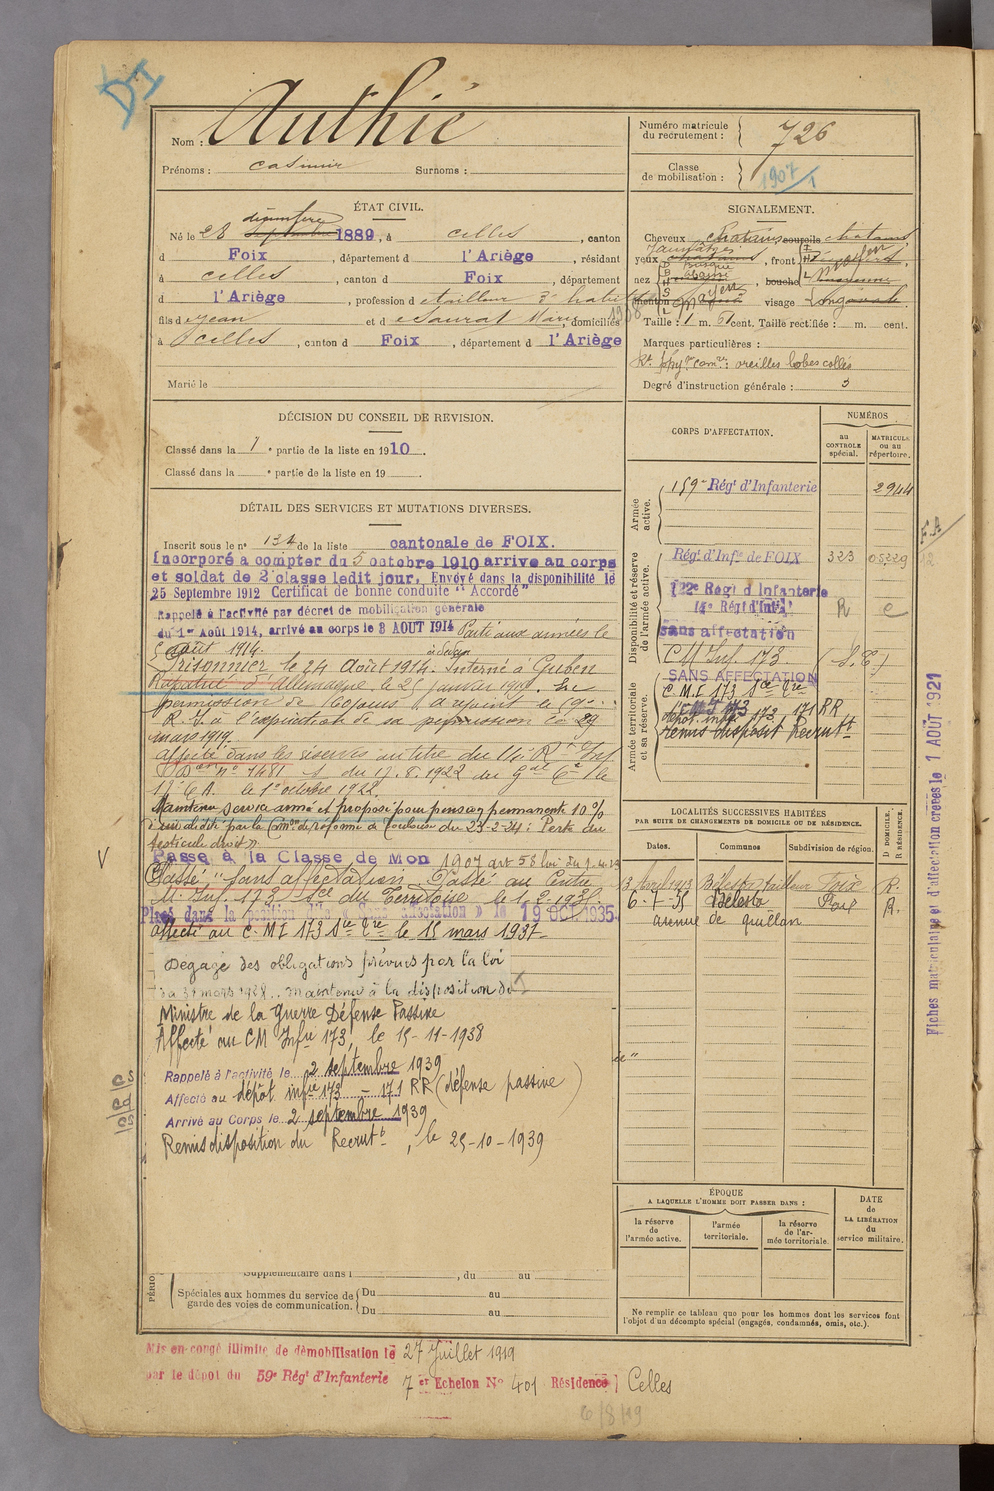 DI
Nom : Authié
Prénoms : Casimir Surnoms :
Numéro matricule du recrutement : 726
Classe de mobilisation : 1907/1
ÉTAT CIVIL.
décembre
Né le 28 septembre 1889, à Celles, canton
d Foix, département d l'Ariège, résidant
à Celles, canton d Foix, département
d l'Ariège, profession de tailleur d'habits
fils de Jean et de Saurat Marie, domiciliés
à Celles, canton d Foix, département d l'Ariège
Marié le
SIGNALEMENT.
Cheveux chatains sourcils chatains
yeux, front
nez, bouche
menton visage
Taille : 1 m. cent. Taille rectifiée : m. cent.
Marques particulières :
oreilles lobes collés
Degré d'instruction générale : 3
DÉCISION DU CONSEIL DE REVISION.
Classé dans la 1 e partie de la liste en 1910.
Classé dans la e partie de la liste en 19
DÉTAIL DES SERVICES ET MUTATIONS DIVERSES.
Inscrit sous le n° 134 de la liste cantonale de FOIX.
Incorporé à compter du 5 octobre 1910 arrive au corps
et soldat de 2e classe ledit jour. Envoyé dans la disponibilité le
25 Septembre 1912 Certificat de bonne conduite "Accordé"
Rappelé à l'activité par décret de mobilisation générale
du 1er Août 1914, arrivé au corps le 3 AOUT 1914 Parti aux armées le
août 1914.
Prisonnier le 24 Août 1914. Interné à Guben
Rapatrié d'Allemagne le 25 janvier 1919. En
permission de 60 jours a rejoint le 59e
R. I. à l'expiration de sa permission le 29
mars 1919.
Affecté dans les réserves au titre du 14e R. d'Inf.
n° 1481 du 17.8.1922 du Gal Ct le
17e C.A. le 1er octobre 1922.
Maintenu service armé et proposé pour pension permanente 10%
d'invalidité par la Comon de réforme de Toulouse du 23-2-34 : Perte du
testicule droit.
Passé à la Classe de Mon 1907 art 58 loi du 1.4.23
Classé "sans affectation". Passé au Centre
M. Inf. 173 Son du Territoire le 1.2.1935.
Placé dans la position dite « sans affectation » le 19 OCT 1935.
Affecté au C.M.I 173 Son Tre le 15 mars 1937
Dégagé des obligations prévues par la loi
du 31 mars 1928.. maintenu à la disposition du
Ministre de la Guerre Défense Passive
Affecté au CM Infie 173, le 15-11-1938
Rappelé à l'activité le 2 septembre 1939
Affecté au dépôt infie 173 - 171 RR (défense passive)
Arrivé au Corps le 2 septembre 1939
Remis disposition du Recrutt, le 25-10-1939
CORPS D'AFFECTATION.
NUMÉROS
au CONTROLE spécial.
MATRICULE ou au répertoire.
Armée active.
159e Régt d'Infanterie 2944
Disponibilité et réserve de l'armée active.
Régt d'Infie de FOIX 323 05229
122e Régt d'Infanterie
14e Régt d'Infie R e
sans affectation
C M Inf. 173. (S.E)
SANS AFFECTATION
Armée territoriale et sa réserve.
C.M.I 173 Son Tre
dépôt infie 173 171 RR
Remis disposit Recrutt
LOCALITÉS SUCCESSIVES HABITÉES
PAR SUITE DE CHANGEMENTS DE DOMICILE OU DE RÉSIDENCE.
Dates. Communes Subdivision de région. D DOMICILE. R RÉSIDENCE.
3 Avril 1913 Bélesta tailleur Foix R.
6-7-35 Bélesta Foix R.
avenue de Quillan
ÉPOQUE
A LAQUELLE L'HOMME DOIT PASSER DANS :
la réserve de l'armée active.
l'armée territoriale.
la réserve de l'armée territoriale.
DATE de LA LIBÉRATION du service militaire.
Ne remplir ce tableau que pour les hommes dont les services font l'objet d'un décompte spécial (engagés, condamnés, omis, etc.).
Supplémentaire dans l , du au
Spéciales aux hommes du service de garde des voies de communication. Du au
Du au
Mis en congé illimité de démobilisation le 27 Juillet 1919
par le dépôt du 59e Régt d'Infanterie 7 er Echelon N° 401 Résidence Celles
6/8/19
Fiches matriculaire et d'affectation créées le 1 AOUT 1921